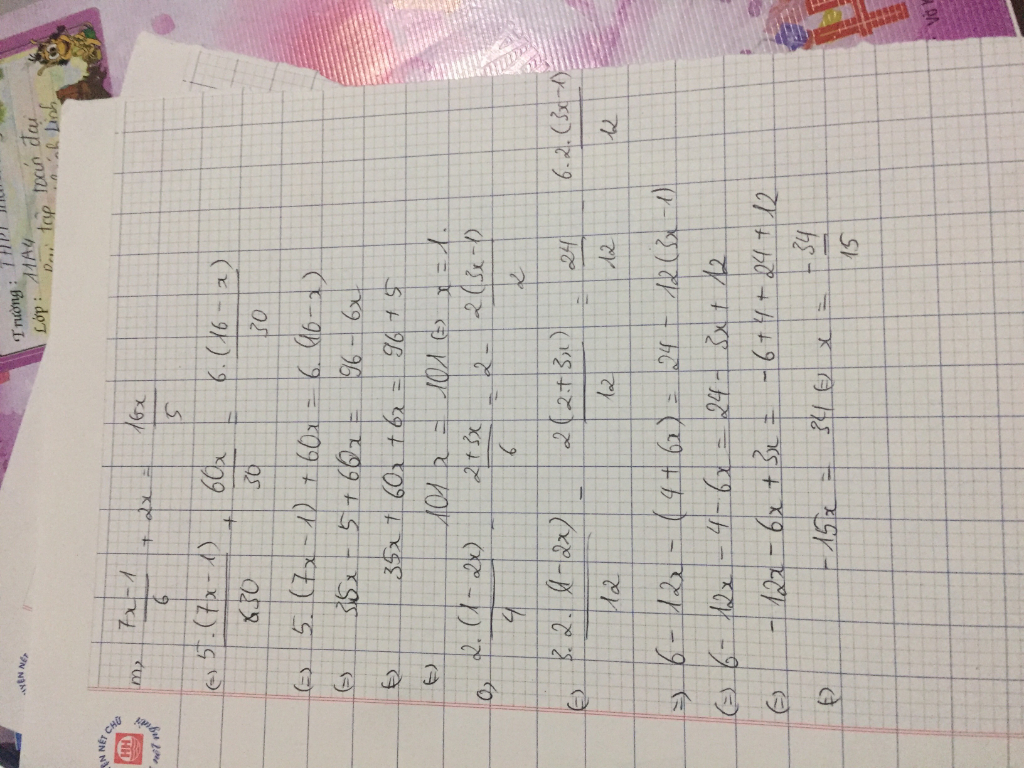 Trường: THPT
Lớp: 11A4
Bài tập toán đại
m, \frac{7x-1}{6} + 2x = \frac{16x}{5}
(=) \frac{5.(7x-1)}{30} + \frac{60x}{30} = \frac{6.(16-x)}{30}
(=) 5.(7x-1) + 60x = 6.(16-x)
(=) 35x - 5 + 60x = 96 - 6x
(=) 35x + 60x + 6x = 96 + 5
(=) 101x = 101 (=) x = 1.
o, \frac{2.(1-2x)}{4} - \frac{2+3x}{6} = 2 - \frac{2(3x-1)}{2}
(=) \frac{3.2.(1-2x)}{12} - \frac{2(2+3x)}{12} = \frac{24}{12} - \frac{6.2.(3x-1)}{12}
=) 6 - 12x - (4+6x) = 24 - 12(3x-1)
(=) 6 - 12x - 4 - 6x = 24 - 3x + 12
(=) -12x - 6x + 3x = -6 + 4 + 24 + 12
(=) -15x = 34 (=) x = \frac{-34}{15}
HH